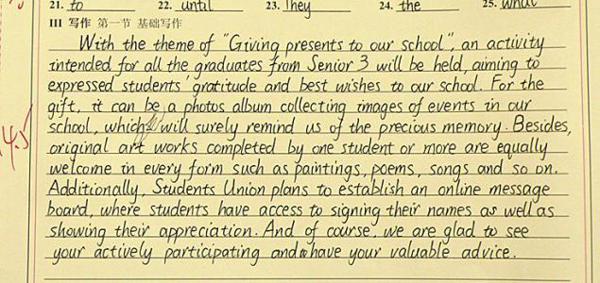 21. to 22. until 23. They 24. the 25. what
III 写作 第一节 基础写作
With the theme of "Giving presents to our school", an activity
intended for all the graduates from Senior 3 will be held, aiming to
expressed students' gratitude and best wishes to our school. For the
gift, it can be a photos album collecting images of events in our
school, which will surely remind us of the precious memory. Besides,
original art works completed by one student or more are equally
welcome in every form such as paintings, poems, songs and so on.
Additionally, Students Union plans to establish an online message
board, where students have access to signing their names as well as
showing their appreciation. And of course, we are glad to see
your actively participating and have your valuable advice.